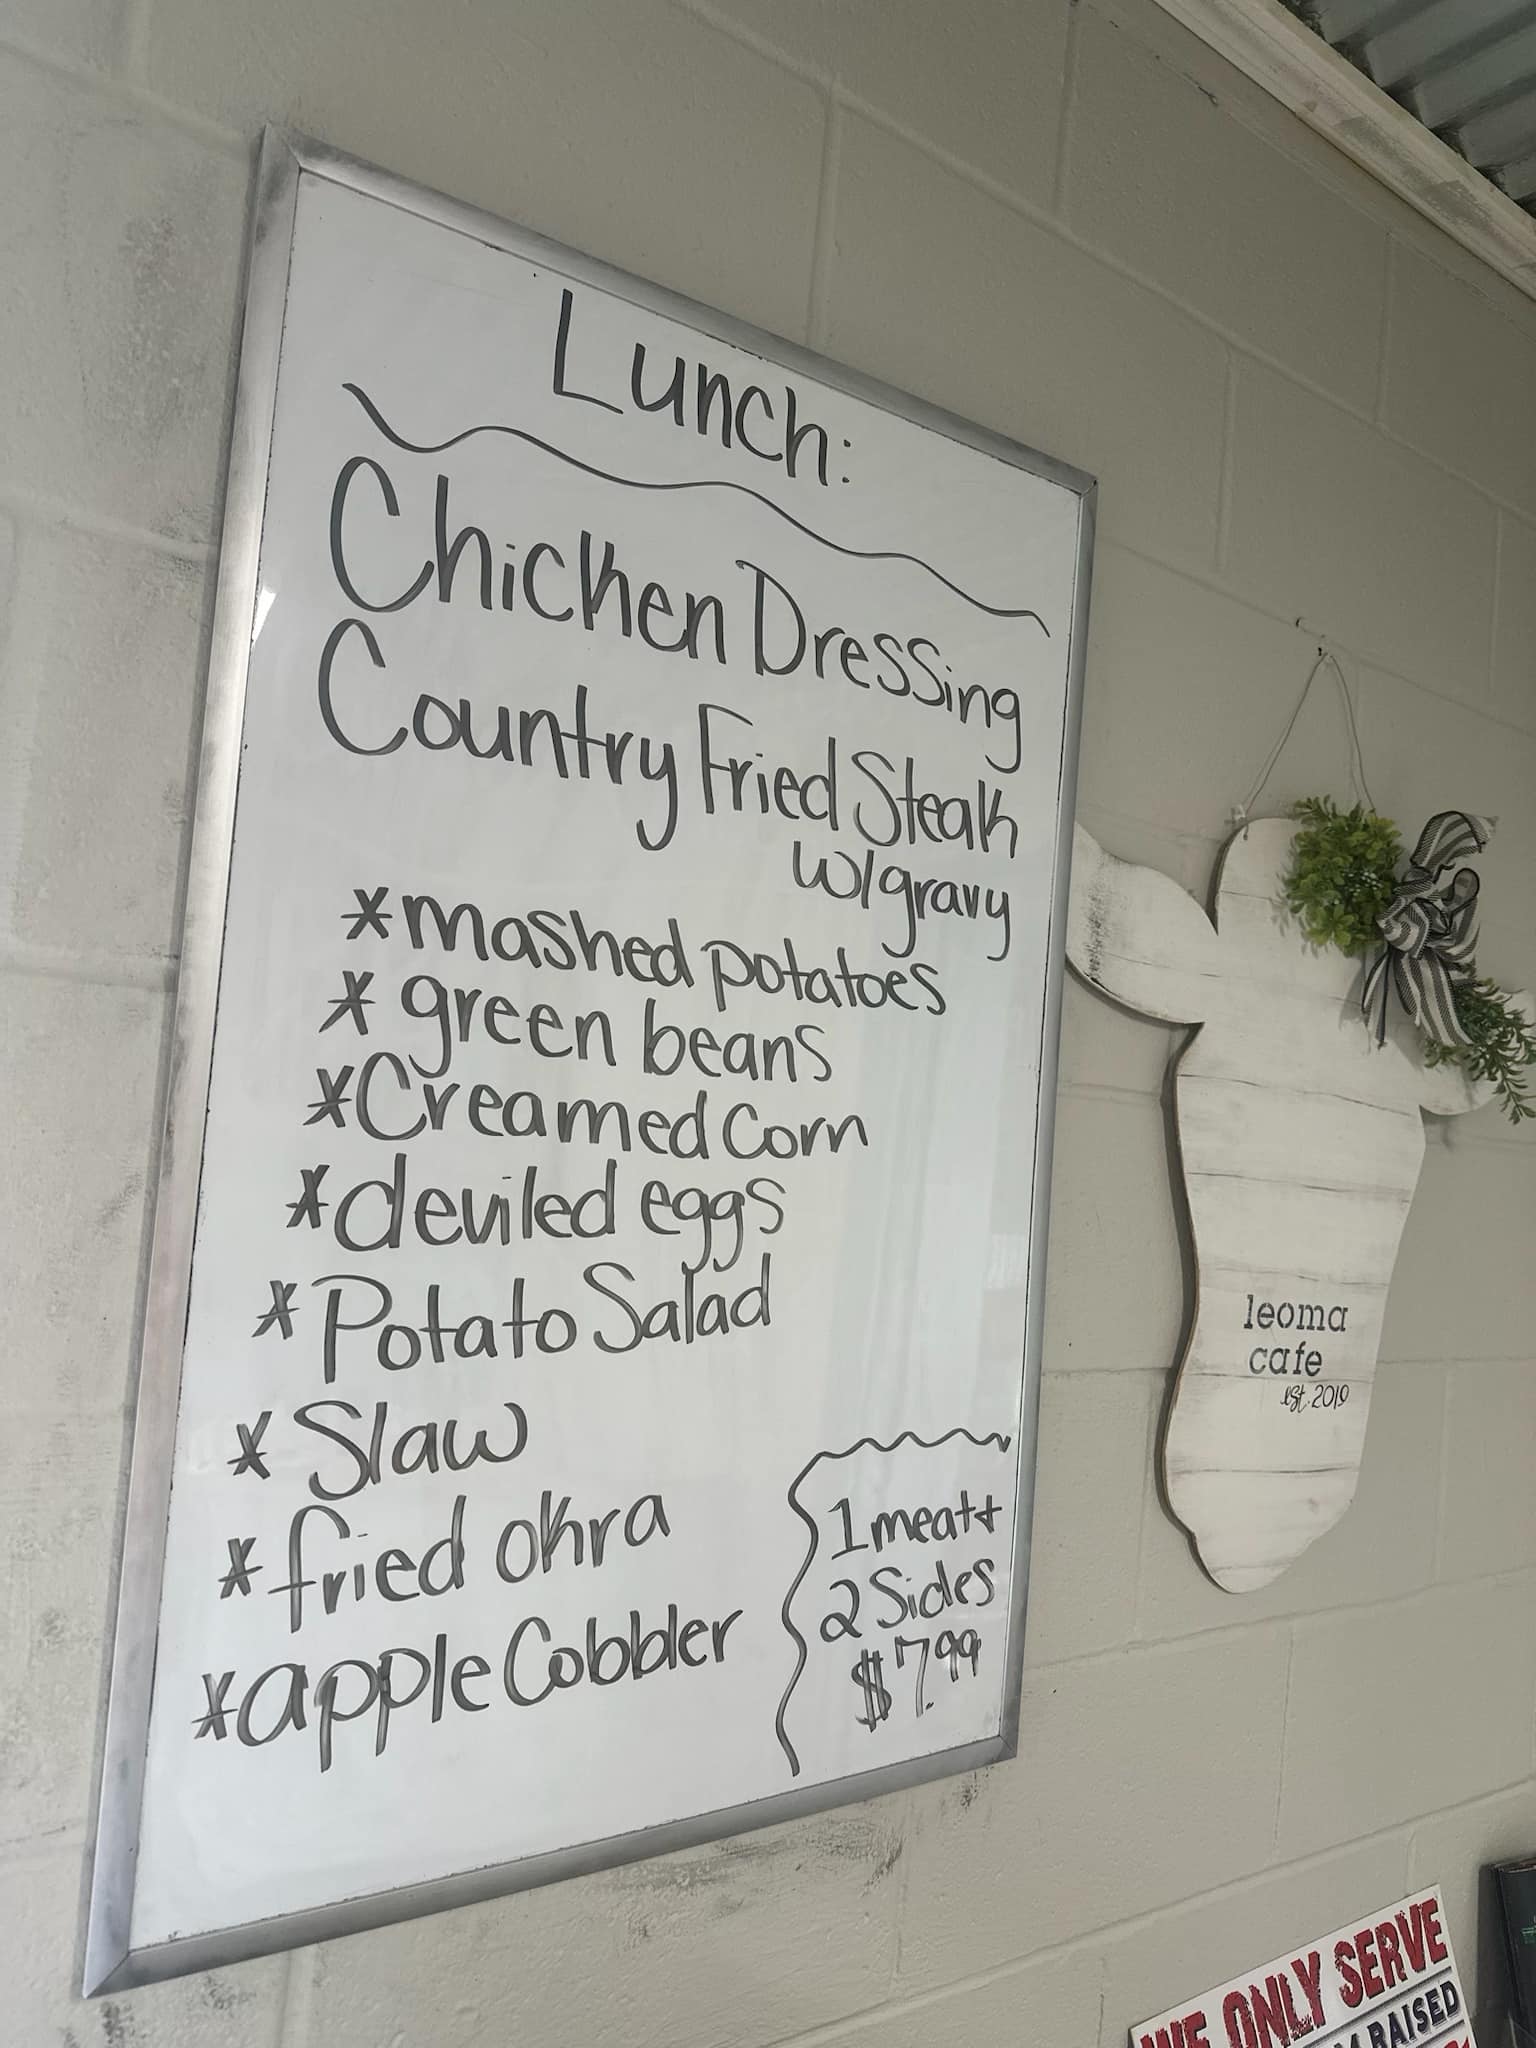 Lunch:
Chicken Dressing
Country Fried Steak
w/gravy
*mashed potatoes
* green beans
*Creamed Corn
*deviled eggs
*Potato Salad
* Slaw
*fried okra
*apple Cobbler
1 meat +
2 Sides
$7.99
leoma
cafe
est. 2019
WE ONLY SERVE
RAISED